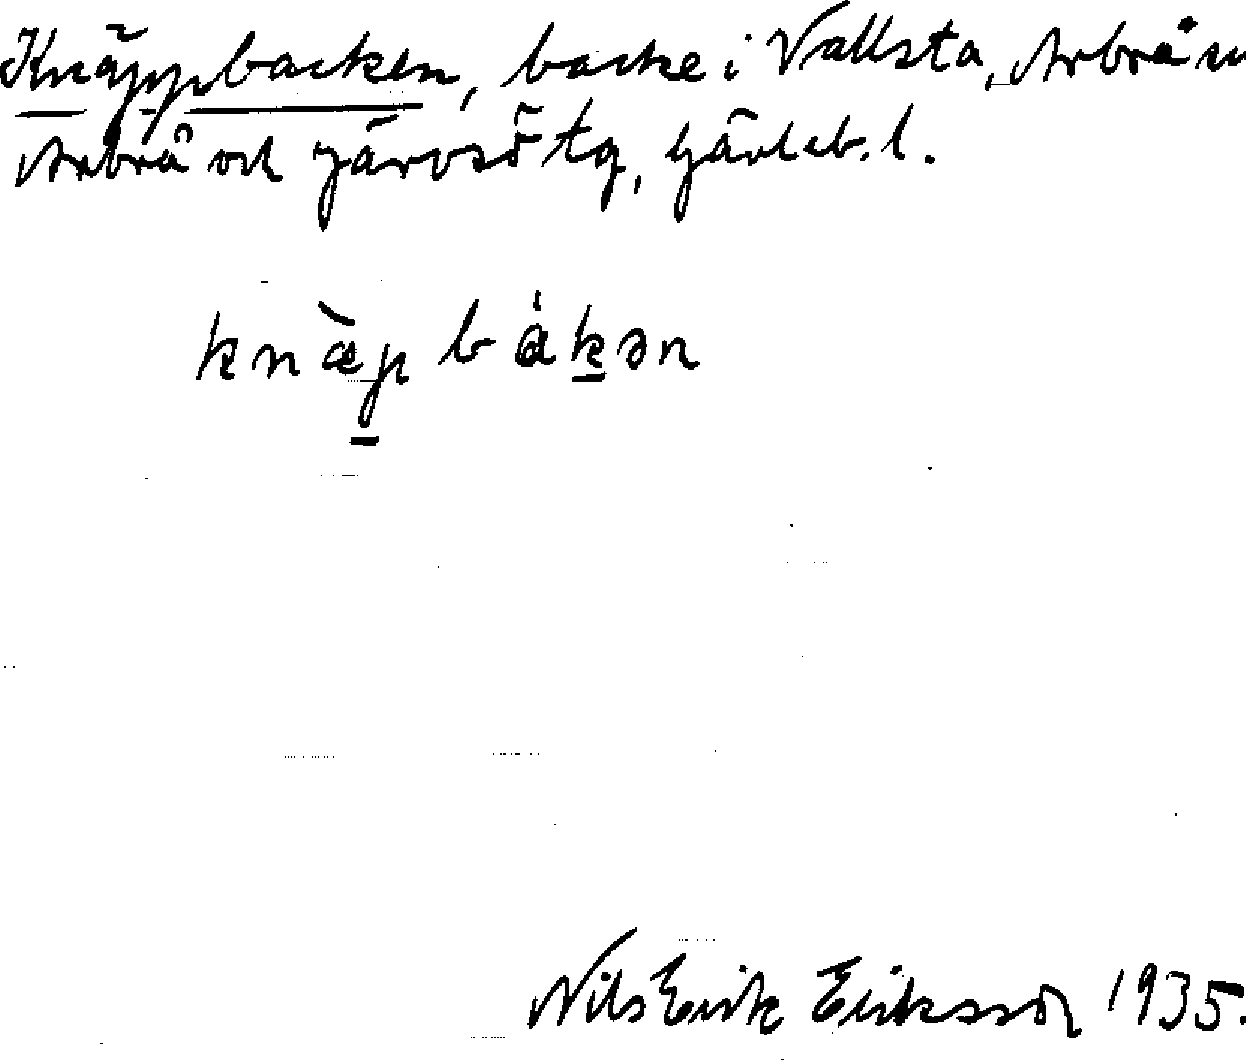 Knäppbacken, backe i Vallsta, Arbrå sn
Arbrå och Järvsö tg, Gävleb. l.
knæ̀p bákən
Nils Erik Eriksson 1935.